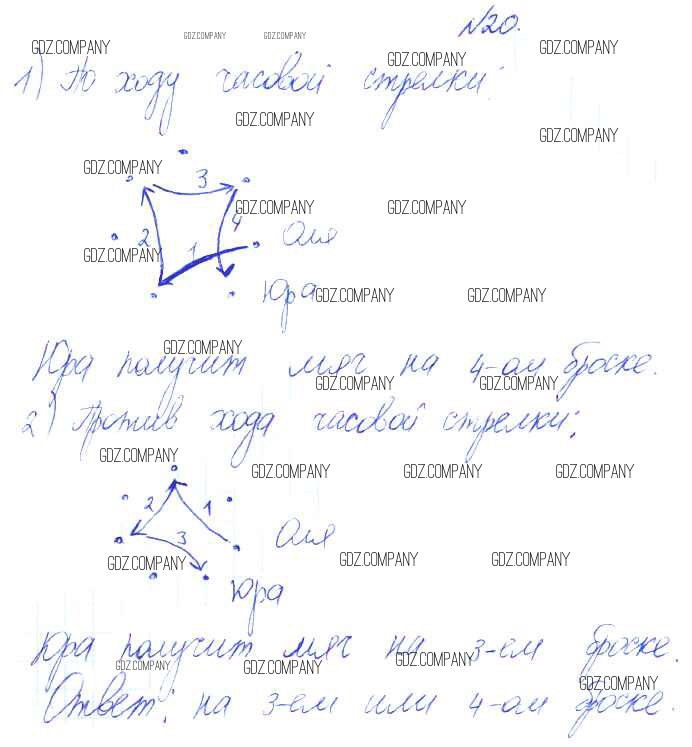 №20.
GDZ.COMPANY GDZ.COMPANY GDZ.COMPANY GDZ.COMPANY GDZ.COMPANY
1) По ходу часовой стрелки:
GDZ.COMPANY GDZ.COMPANY
GDZ.COMPANY
3
GDZ.COMPANY GDZ.COMPANY
4
2 1 Оля
GDZ.COMPANY
Юра GDZ.COMPANY GDZ.COMPANY
GDZ.COMPANY
Юра получит мяч на 4-ом броске.
GDZ.COMPANY GDZ.COMPANY
2) Против хода часовой стрелки:
GDZ.COMPANY GDZ.COMPANY GDZ.COMPANY GDZ.COMPANY
2 1
3 Оля
GDZ.COMPANY GDZ.COMPANY GDZ.COMPANY
Юра
Юра получит мяч на 3-ем броске.
GDZ.COMPANY GDZ.COMPANY GDZ.COMPANY
GDZ.COMPANY
Ответ: на 3-ем или 4-ом броске.